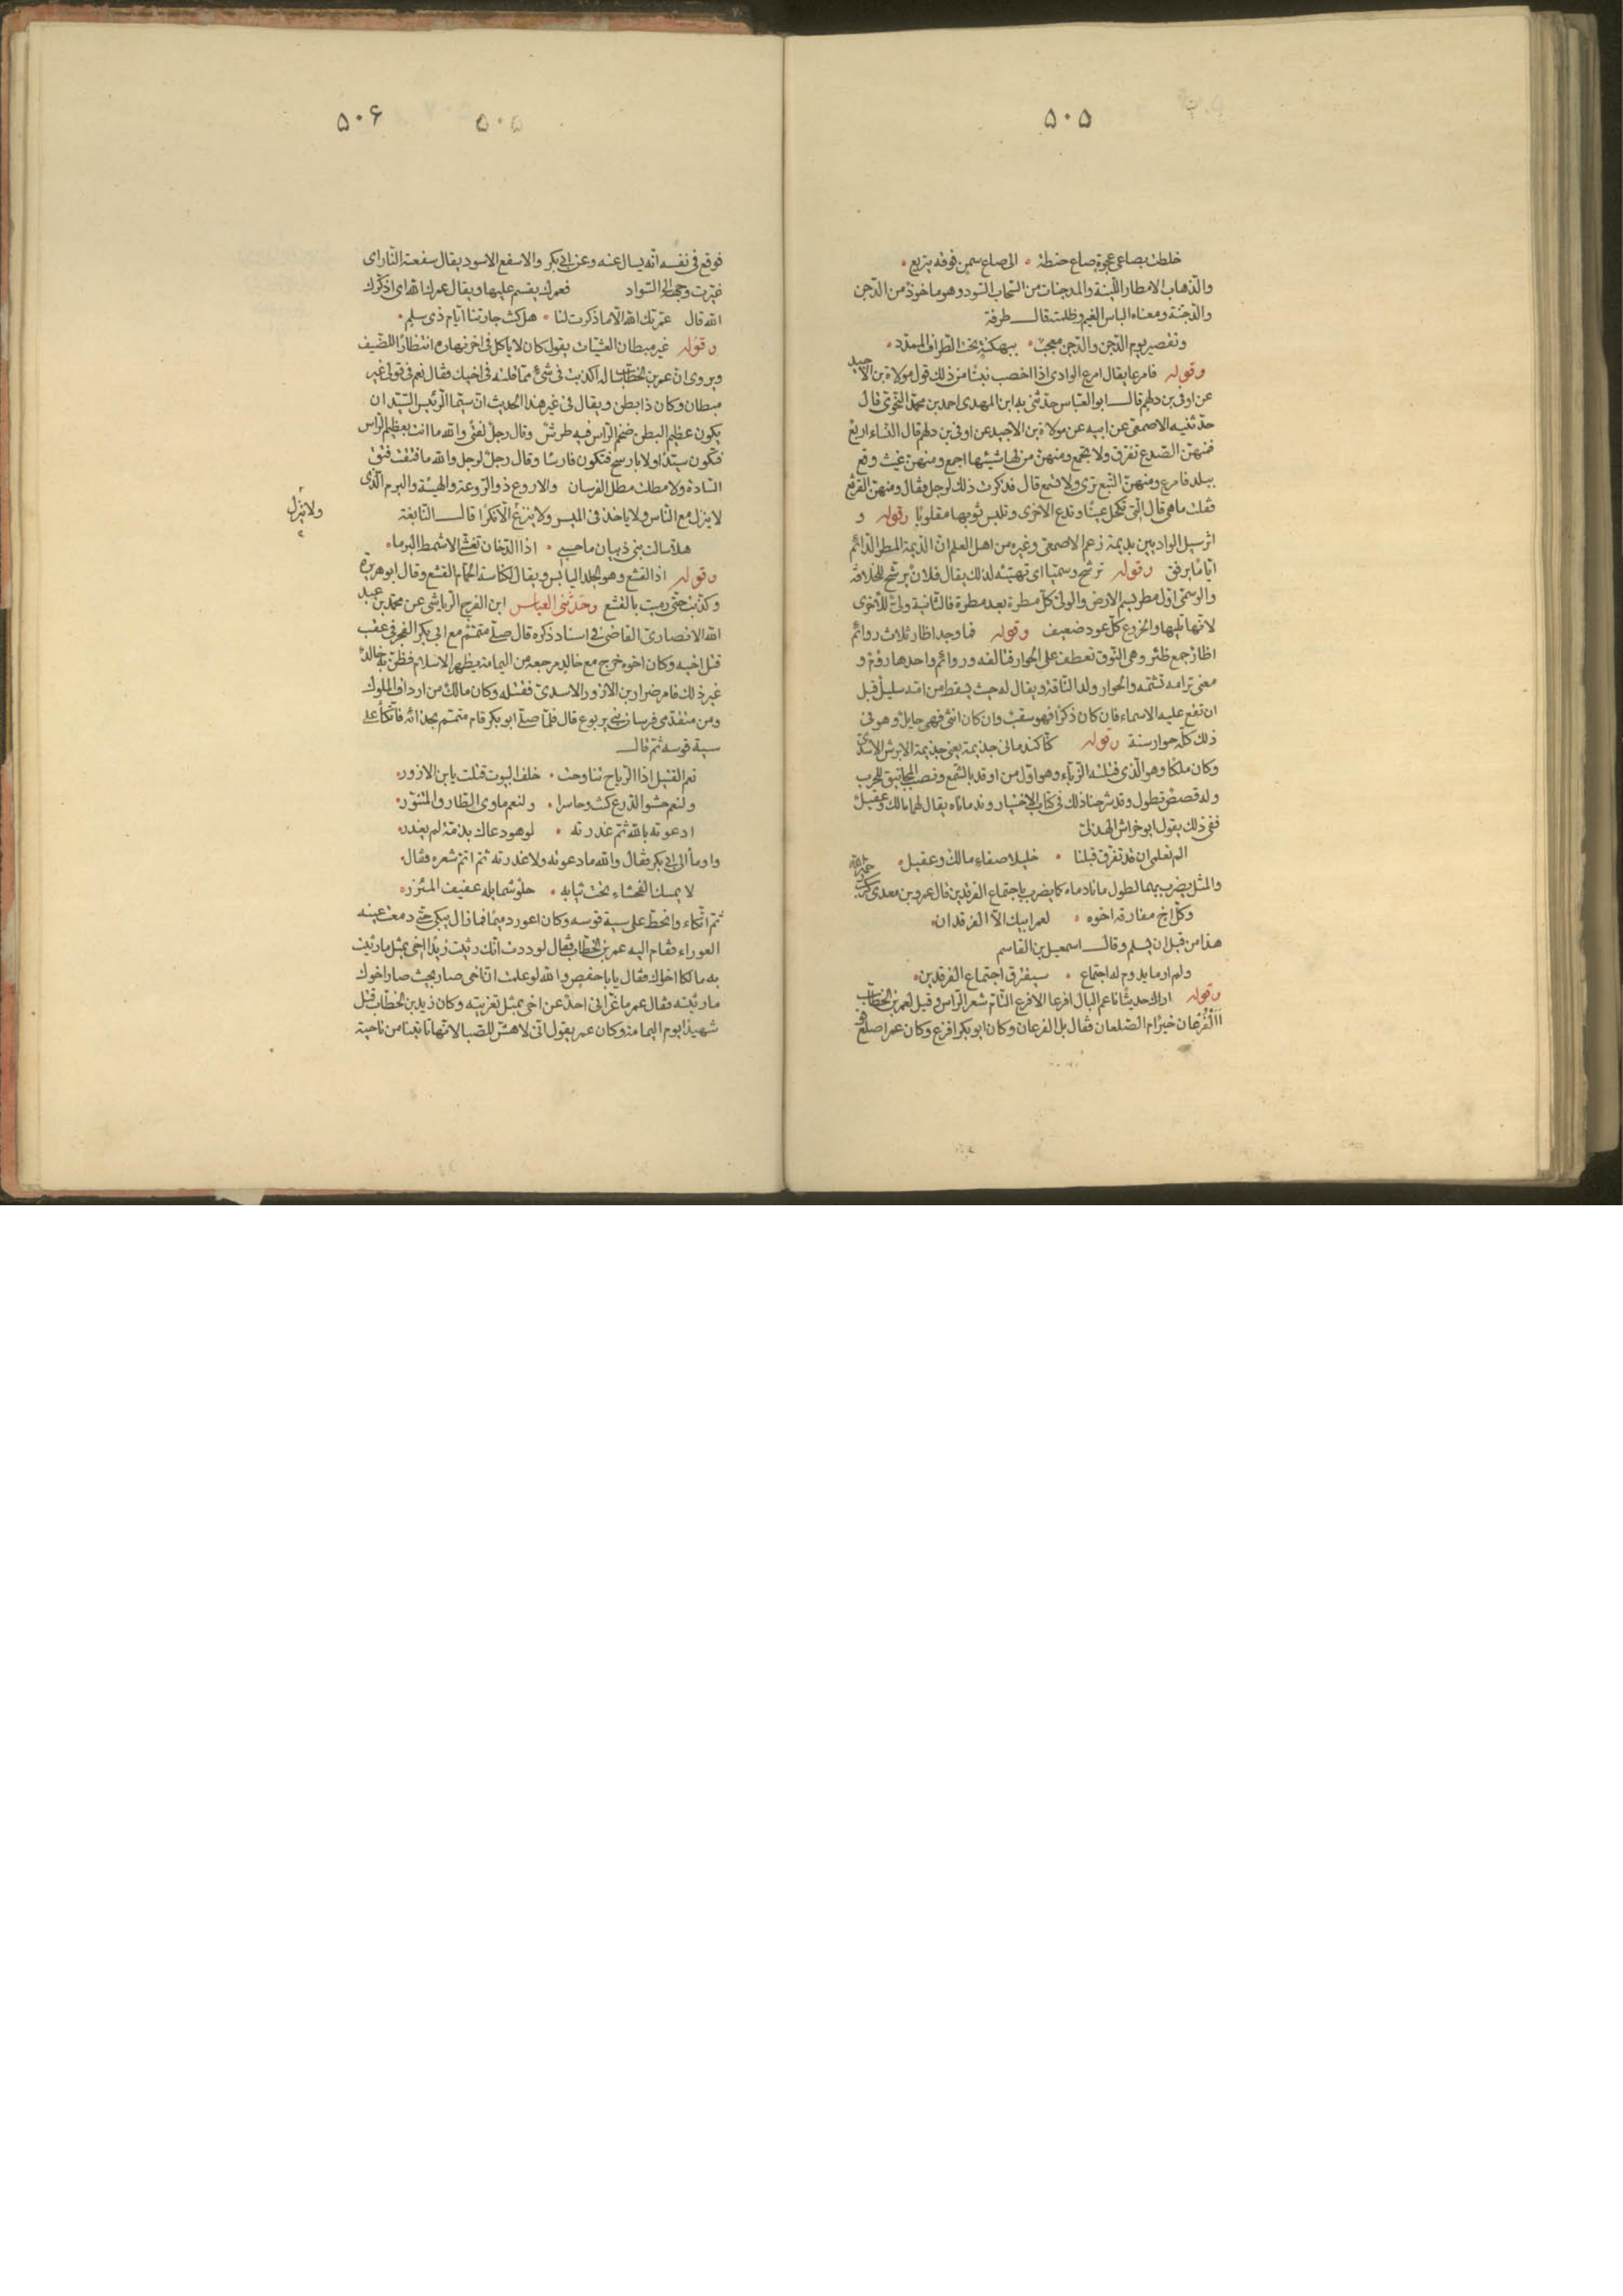 ۵۰۵
خلطت بصاعی عجوة صاع حنطة • الی صاع سمن فوقه یتریع •
والذهاب الامطار اللینة والمدجنات من السحاب السود وهو ماخوذ من الدجن
والدجنة ومعناه الباس الغیم وظلمته قال طرفة
وتقصیر یوم الدجن والدجن معجب • ببهکنة تحت الطراف الممدد •
وقوله فامرعا یقال امرع الوادی اذا اخصب نبتا من ذلک قول مولاة بن الاجید
عن اوفی بن دلهم قال ابو العباس حدثنی به ابن المهدی احمد بن محمد النحوی قال
حدثنیه الاصمعی عن ابیه عن مولاة بن الاجید عن اوفی بن دلهم قال النساء اربع
فمنهن الصدع تفرق ولا تجمع ومنهن من لها شیئها اجمع ومنهن غیث وقع
ببلد فامرع ومنهن التبع تری ولا تسمع قال فذکرت ذلک لرجل فقال ومنهن القرثع
فقلت ما هی قال التی تکحل عینا وتدع الاخری وتلبس ثوبها مقلوبا وقوله و
اثر سیل الوادیین بدیمة زعم الاصمعی وغیره من اهل العلم ان الدیمة المطر الدائم
ایاما برفق وقوله ترشح وسمیا ای تهیئه لذلک یقال فلان یرشح للخلافة
والوسمی اول مطر یسم الارض والولی کل مطرة بعد مطرة فالثانیة ولی للاخری
لانها تلیها والخروع کل عود ضعیف وقوله فما وجد اظار ثلاث روائم
اظار جمع ظئر وهی النوق تعطف علی الحوار فتالفه وروائم واحدها رؤم و
معنی ترامه تشمه والحوار ولد الناقة ویقال له حیث یسقط من امه سلیل قبل
ان تقع علیه الاسماء فان کان ذکرا فهو سقب وان کان انثی فهی حایل وهو فی
ذلک کله حوار سنة وقوله کنا کندمانی جذیمة یعنی جذیمة الابرش الازدی
وکان ملکا وهو الذی قتلته الزباء وهو اول من اوقد بالشمع ونصب المجانیق للحرب
وله قصص تطول وقد شرحنا ذلک فی کتاب الاختیار وندماناه یقال لهما مالک وعقیل
ففی ذلک یقول ابو خراش الهذلی
الم تعلمی ان قد تفرق قبلنا • خلیلا صفاء مالک وعقیل •
والمثل یضرب بهما لطول ما نادماه کما یضرب باجتماع الفرقدین قال عمرو بن معدی کرب
وکل اخ مفارقه اخوه • لعمر ابیک الا الفرقدان •
هذا من قبل ان یسلم وقال اسمعیل بن القاسم
ولم ار ما یدوم له اجتماع • سیفرق اجتماع الفرقدین •
وقوله اراک حدیثا ناعم البال افرعا الافرع التام شعر الراس وقیل لعمر بن الخطاب
االفرعان خیر ام الصلعان فقال بل الفرعان وکان ابو بکر افرع وکان عمر اصلع
۵۰۶
۵۰۵
فوقع فی نفسه انه یسال عنه وعن ابی بکر والاسفع الاسود یقال سفعته النار ای
غیرت وجهه الی السواد فعمرک یقسم علیها ویقال عمرک الله ای اذکرک
الله قال عمرتک الله الا ما ذکرت لنا • هل کنت جارتنا ایام ذی سلم •
وقوله غیر مبطان العشیات یقول کان لا یاکل فی اخر نهاره انتظارا للضیف
ویروی ان عمر بن الخطاب ساله اکذبت فی شیء مما قلته فی اخیک فقال نعم فی قولی غیر
مبطان وکان ذا بطن ویقال فی غیر هذا الحدیث ان سیما الرئیس السید ان
یکون عظیم البطن ضخم الراس فیه طرش وقال رجل لفتی والله ما انت بعظیم الراس
فتکون سیدا ولا بارسح فتکون فارسا وقال رجل لرجل والله ما فتقت فتق
السادة ولا مطلت مطل الفرسان والاروع ذو الروعة والهیئة والبرم الذی
لا ینزل مع الناس ولا یاخذ فی المیسر ولا ینزع الا نکرا قال النابغة
ولا ینزل
هلا سالت بنی ذبیان ما حسبی • اذا الدخان تغشی الاشمط البرما •
وقوله اذا القشع وهو الجلد الیابس ویقال لکناسة الحمام القشع وقال ابو هریرة
وکذبت حتی رمیت بالقشع وحدثنی العباس ابن الفرج الریاشی عن محمد بن عبد
الله الانصاری القاضی فی اسناد ذکره قال صلی متمم مع ابی بکر الفجر فی عقب
قتل اخیه وکان اخوه خرج مع خالد مرجعه من الیمامة یظهر الاسلام فظن به خالد
غیر ذلک فامر ضرار بن الازور الاسدی فقتله وکان مالک من ارداف الملوک
ومن متقدمی فرسان بنی یربوع قال فلما صلی ابو بکر قام متمم بحذائه فاتکأ علی
سیة قوسه ثم قال
نعم القتیل اذا الریاح تناوحت • خلف البیوت قتلت یابن الازور •
ولنعم حشو الدرع کنت وحاسرا • ولنعم ماوی الطارق المتنور •
ادعوته بالله ثم غدرته • لو هو دعاک بذمة لم یغدر •
واومأ الی ابی بکر فقال والله ما دعوته ولا غدرته ثم اتم شعره فقال
لا یمسک الفحشاء تحت ثیابه • حلو شمایله عفیف المئزر •
ثم اتکاء وانحط علی سیة قوسه وکان اعور دمیما فما زال یبکی حتی دمعت عینه
العوراء فقام الیه عمر بن الخطاب فقال لوددت انک رثیت زیدا اخی بمثل ما رثیت
به مالکا اخاک فقال یابا حفص والله لو علمت ان اخی صار بحیث صار اخوک
ما رثیته فقال عمر ما عزانی احد عن اخی بمثل تعزیته وکان زید بن الخطاب قتل
شهیدا یوم الیمامة وکان عمر یقول انی لاهش للصبا لانها تاتینا من ناحیة